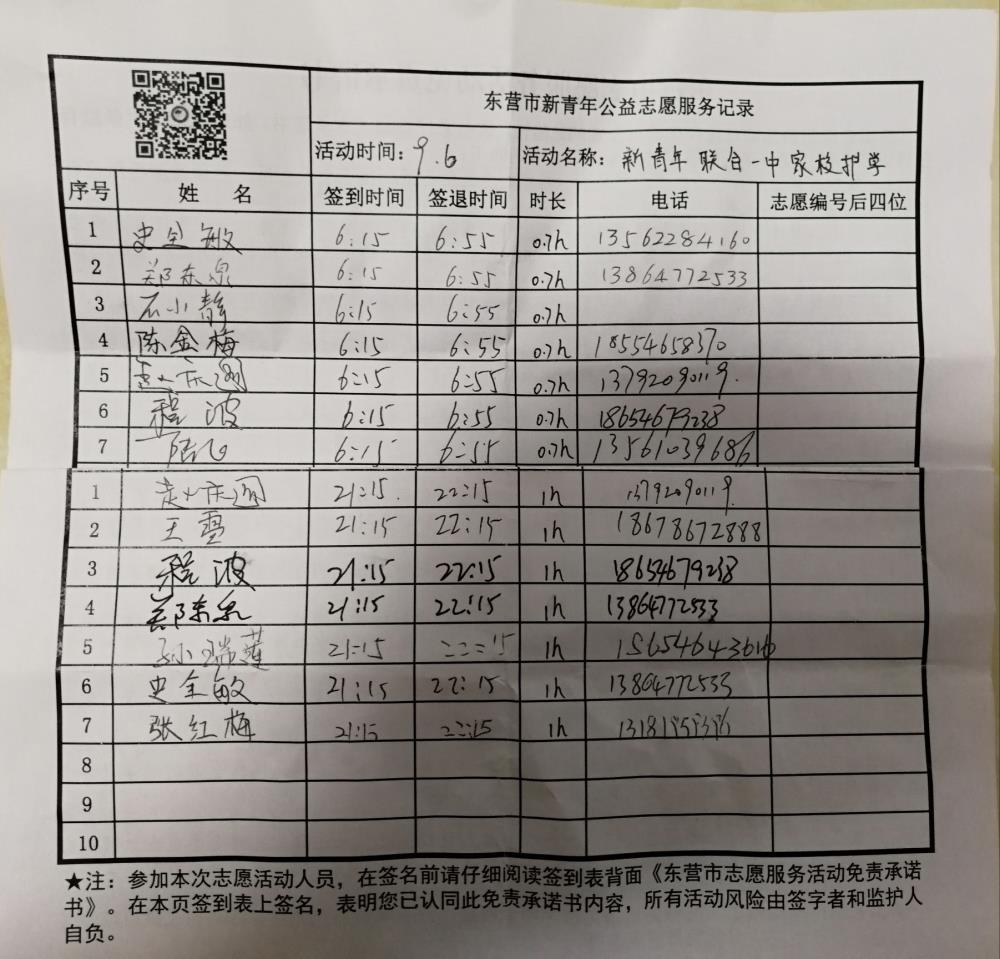 东营市新青年公益志愿服务记录
活动时间：9.6 活动名称：新青年联合一中家校护学
序号 姓 名 签到时间 签退时间 时长 电话 志愿编号后四位
1 史全敏 6:15 6:55 0.7h 13562284160
2 郑东泉 6:15 6:55 0.7h 13864772533
3 石小静 6:15 6:55 0.7h
4 陈金梅 6:15 6:55 0.7h 18554658370
5 6:15 6:55 0.7h 13792090119.
6 程波 6:15 6:55 0.7h 18654679238
7 6:15 6:55 0.7h 13561039686
1 21:15. 22:15 1h 13792090119.
2 王雪 21:15 22:15 1h 18678672888
3 程波 21:15 22:15 1h 18654679238
4 郑东泉 21:15 22:15 1h 13864772533
5 孙瑞莲 21:15 22:15 1h 15654643616
6 史全敏 21:15 22:15 1h 13864772533
7 张红梅 21:15 22:15 1h
8
9
10
★注：参加本次志愿活动人员，在签名前请仔细阅读签到表背面《东营市志愿服务活动免责承诺
书》。在本页签到表上签名，表明您已认同此免责承诺书内容，所有活动风险由签字者和监护人
自负。